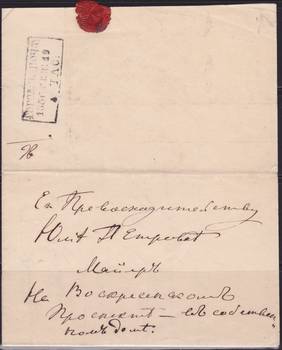 4 ЧАС.
Ея Превосходительству
Юлiи Петровнѣ
Майеръ
На Воскресенскомъ
Проспектѣ — въ собствен„
номъ домѣ.